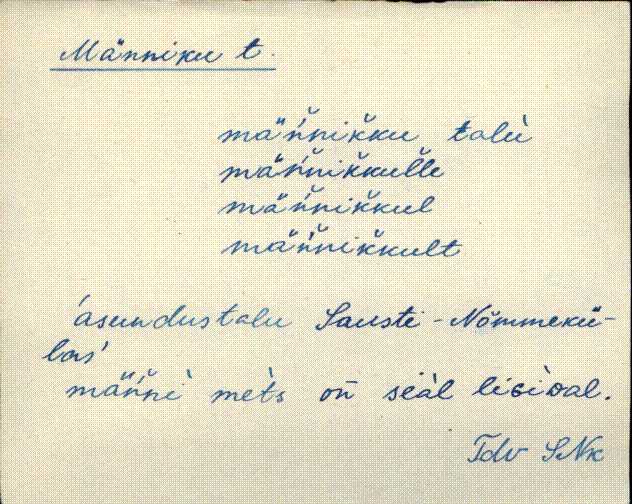 Männiku t.
mäňnik̆ku talù
mäňnik̆kulle
mäňnik̆kul
mäňnik̆kult
'asundustalu Sausti-Nõmmekü-
las'
männì mèts oñ seàl ligìdal.
Tdv SNk